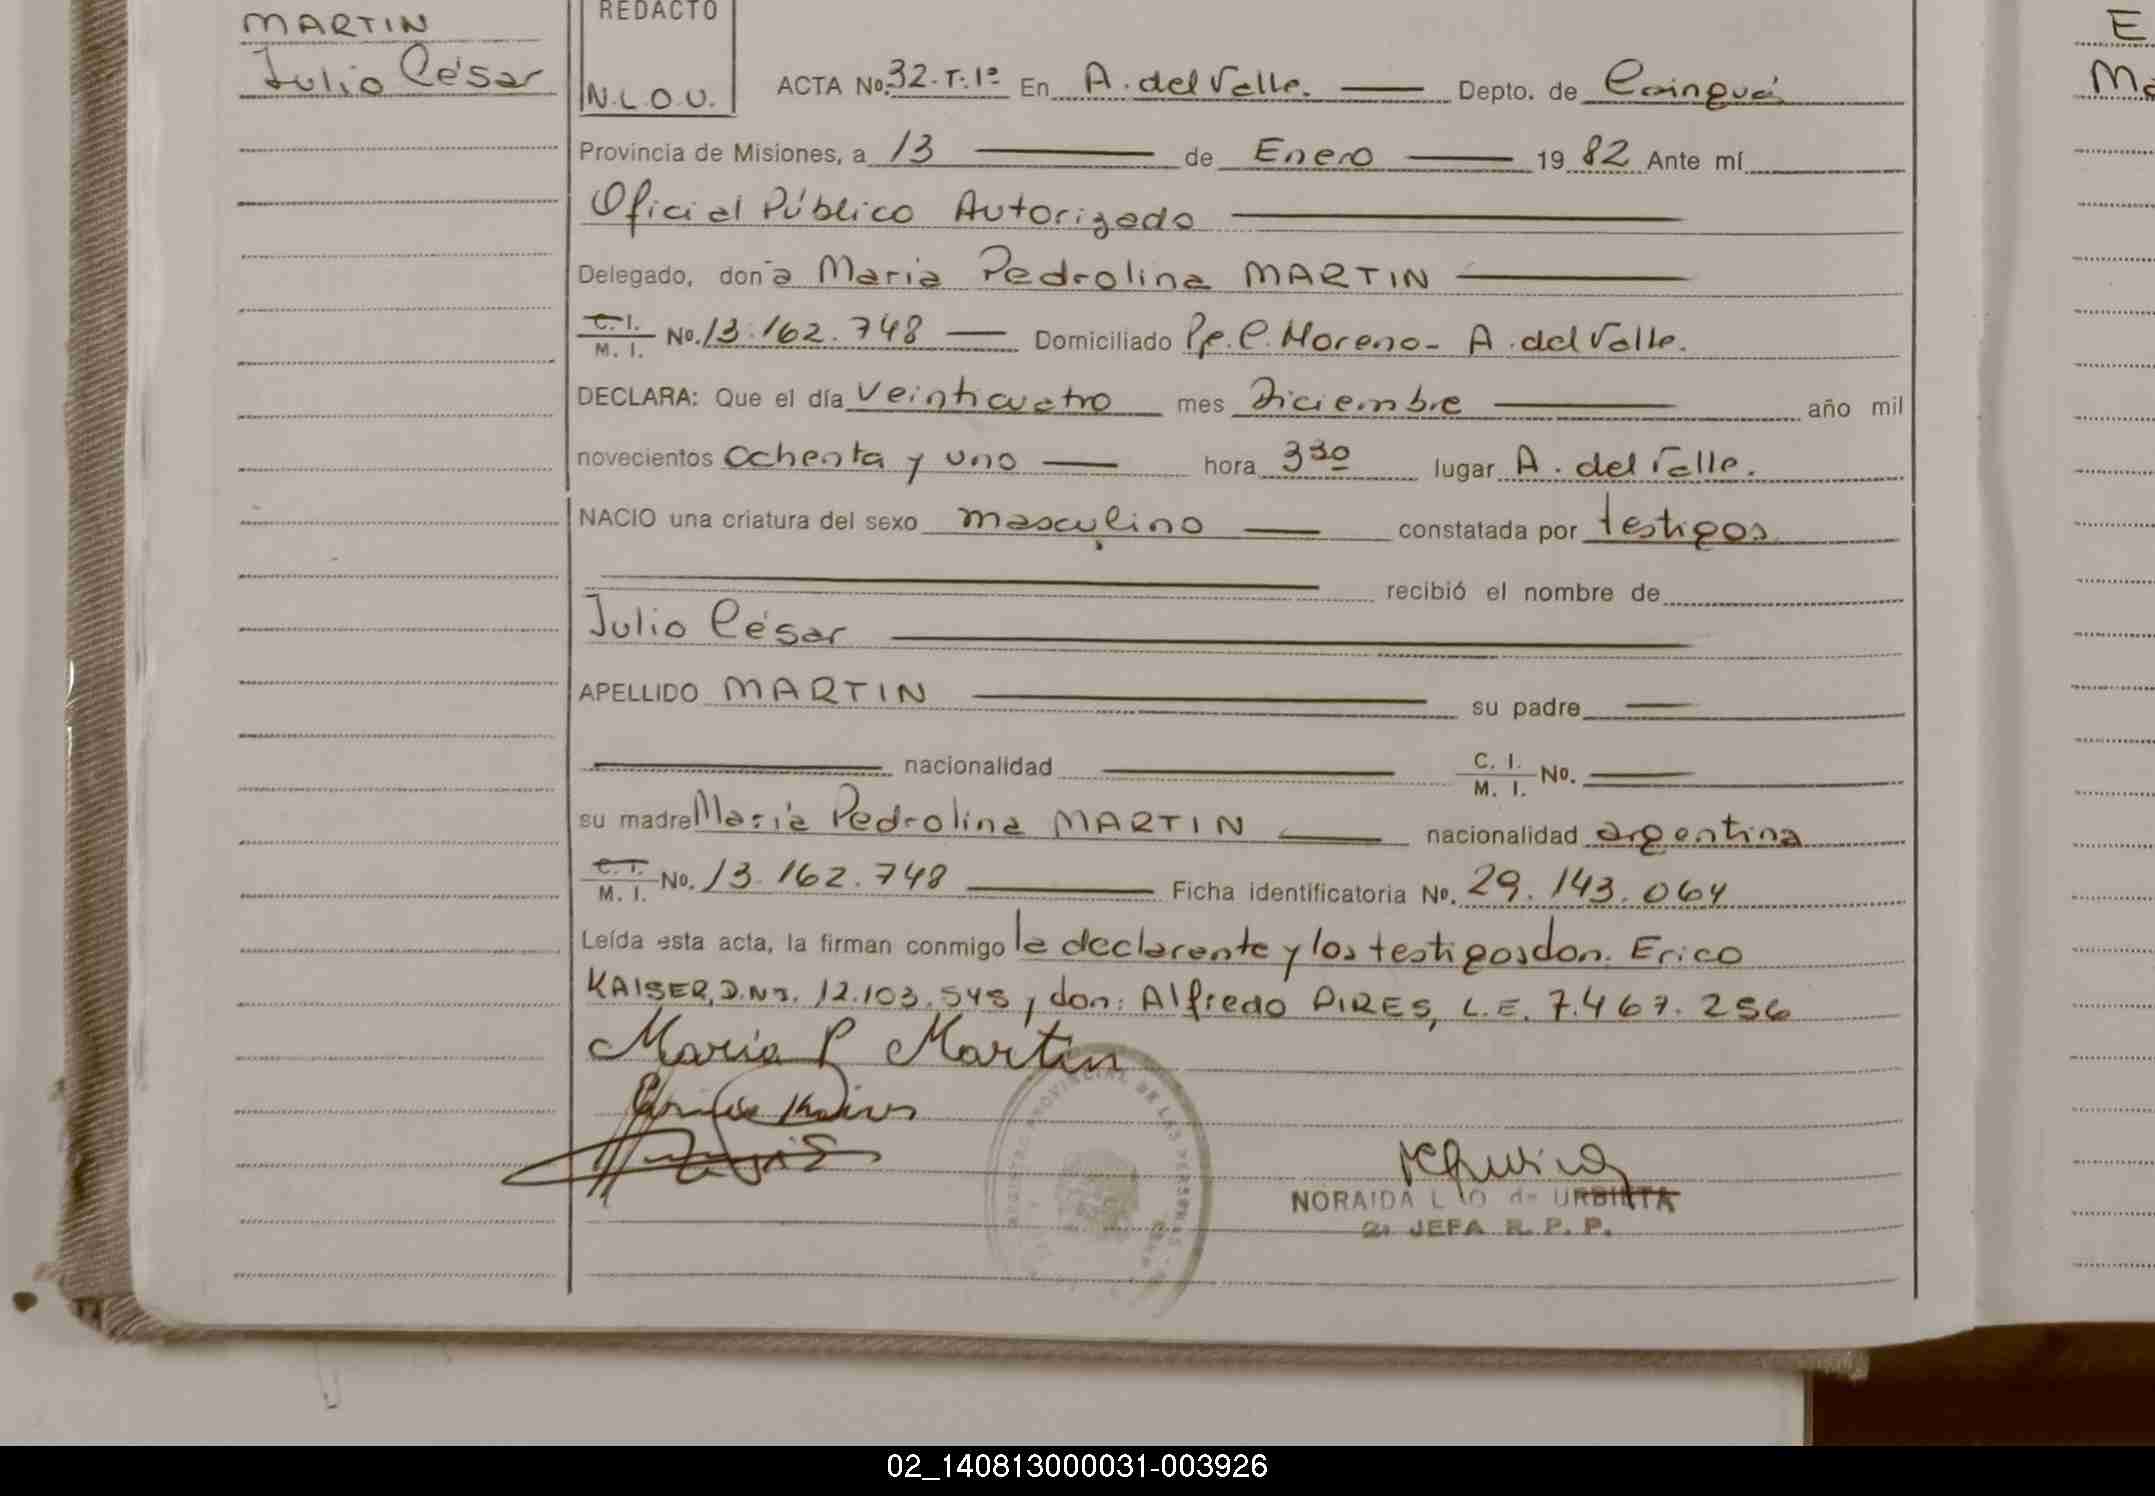 MARTIN
Julio César
REDACTO
N.L.O.U.
ACTA No. 32-T:1º En A. del Valle. Depto. de Cainguá
Provincia de Misiones, a 13 de Enero 1982 Ante mí
Oficial Público Autorizado
Delegado, doña Maria Pedrolina MARTIN
C. I. M. I. No. 13.162.748 Domiciliado Pje. C. Moreno - A. del Valle.
DECLARA: Que el día veinticuatro mes Diciembre año mil
novecientos ochenta y uno hora 3 30 lugar A. del Valle.
NACIO una criatura del sexo masculino constatada por testigos
recibió el nombre de
Julio César
APELLIDO MARTIN su padre
nacionalidad C. I. M. I. No.
su madre María Pedrolina MARTIN nacionalidad argentina
C. I. M. I. No. 13.162.748 Ficha identificatoria No. 29.143.064
Leída esta acta, la firman conmigo la declarante y los testigos don. Erico
KAISER, D.N.I. 12.103.545, don: Alfredo PIRES, L.E. 7.467.256
María P Martin
REGISTRO PROVINCIAL DE LAS PERSONAS
NORAIDA L O de URBIETA
JEFA R. P. P.
E
Ma
02_140813000031-003926